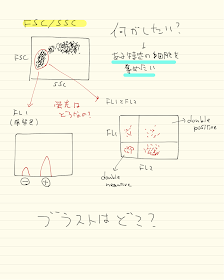 FSC/SSC
何がしたい?
↓
ある特定の細胞を
集めたい
FSC
SSC
蛍光は
どうなの?
FL1
(単染色)
FL1とFL2
double
positive
FL1
FL2
double
negative
⊖ ⊕
ブラストはどこ?